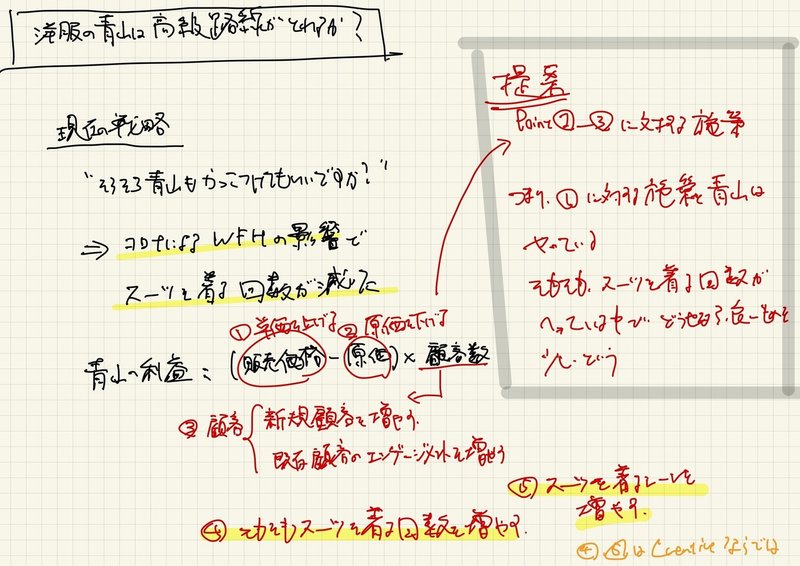 洋服の青山は高級路線がとれるか?
現在の戦略
"そろそろ青山もかっこつけてもいいですか?"
⇒ コロナによるWFHの影響で
スーツを着る回数が減った
① 単価を上げる ② 原価を下げる
青山の利益 = (販売価格 - 原価) × 顧客数
③ 顧客 { 新規顧客を増やす
既存顧客のエンゲージメントを増やす
④ そもそもスーツを着る回数を増やす
⑤ スーツを着るシーンを
増やす
④ ⑤ は Creative ならでは
提案
Point ② ③ に対する施策
つまり、① に対する施策を青山は
やっている
そもそも、スーツを着る回数が
へっている中で、どうせなら、良いものを
という